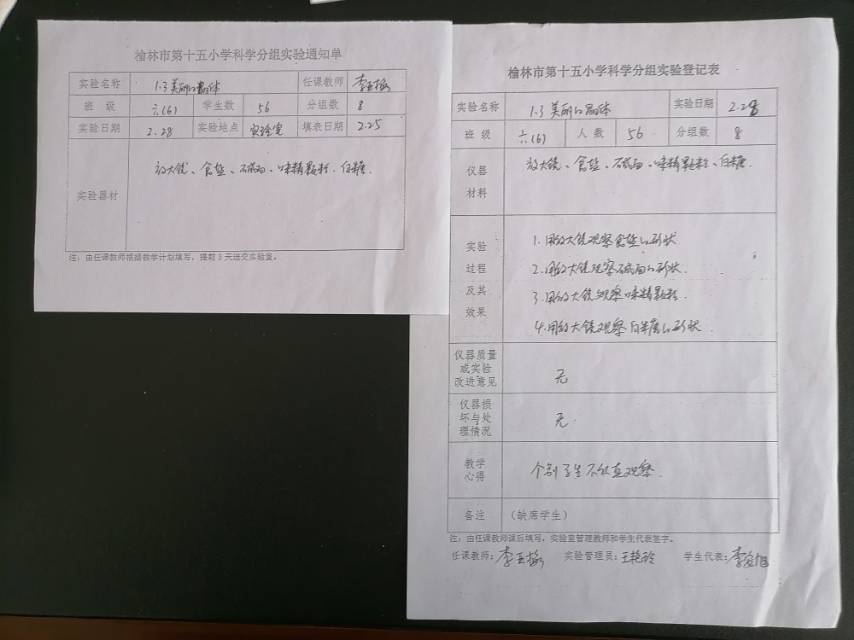 榆林市第十五小学科学分组实验通知单
实验名称 1.3 美丽的晶体 任课教师
班 级 六(6) 学生数 56 分组数 8
实验日期 2.28 实验地点 实验室 填表日期 2.25
实验器材 放大镜、食盐、碱面、味精颗粒、白糖.
注:由任课教师根据教学计划填写,提前3天送交实验室。
榆林市第十五小学科学分组实验登记表
实验名称 1.3 美丽的晶体 实验日期 2.28
班 级 六(6) 人 数 56 分组数 8
仪器
材料
放大镜、食盐、碱面、味精颗粒、白糖.
实验
过程
及其
效果
1.用放大镜观察食盐的形状
2.用放大镜观察碱面的形状.
3.用放大镜观察味精颗粒.
4.用放大镜观察白糖的形状.
仪器质量
或实验
改进意见
无
仪器损
坏与处
理情况
无.
教学
心得
个别学生不认真观察.
备注 (缺席学生)
注:由任课教师课后填写,实验室管理教师和学生代表签字。
任课教师: 实验管理员:王艳玲 学生代表: